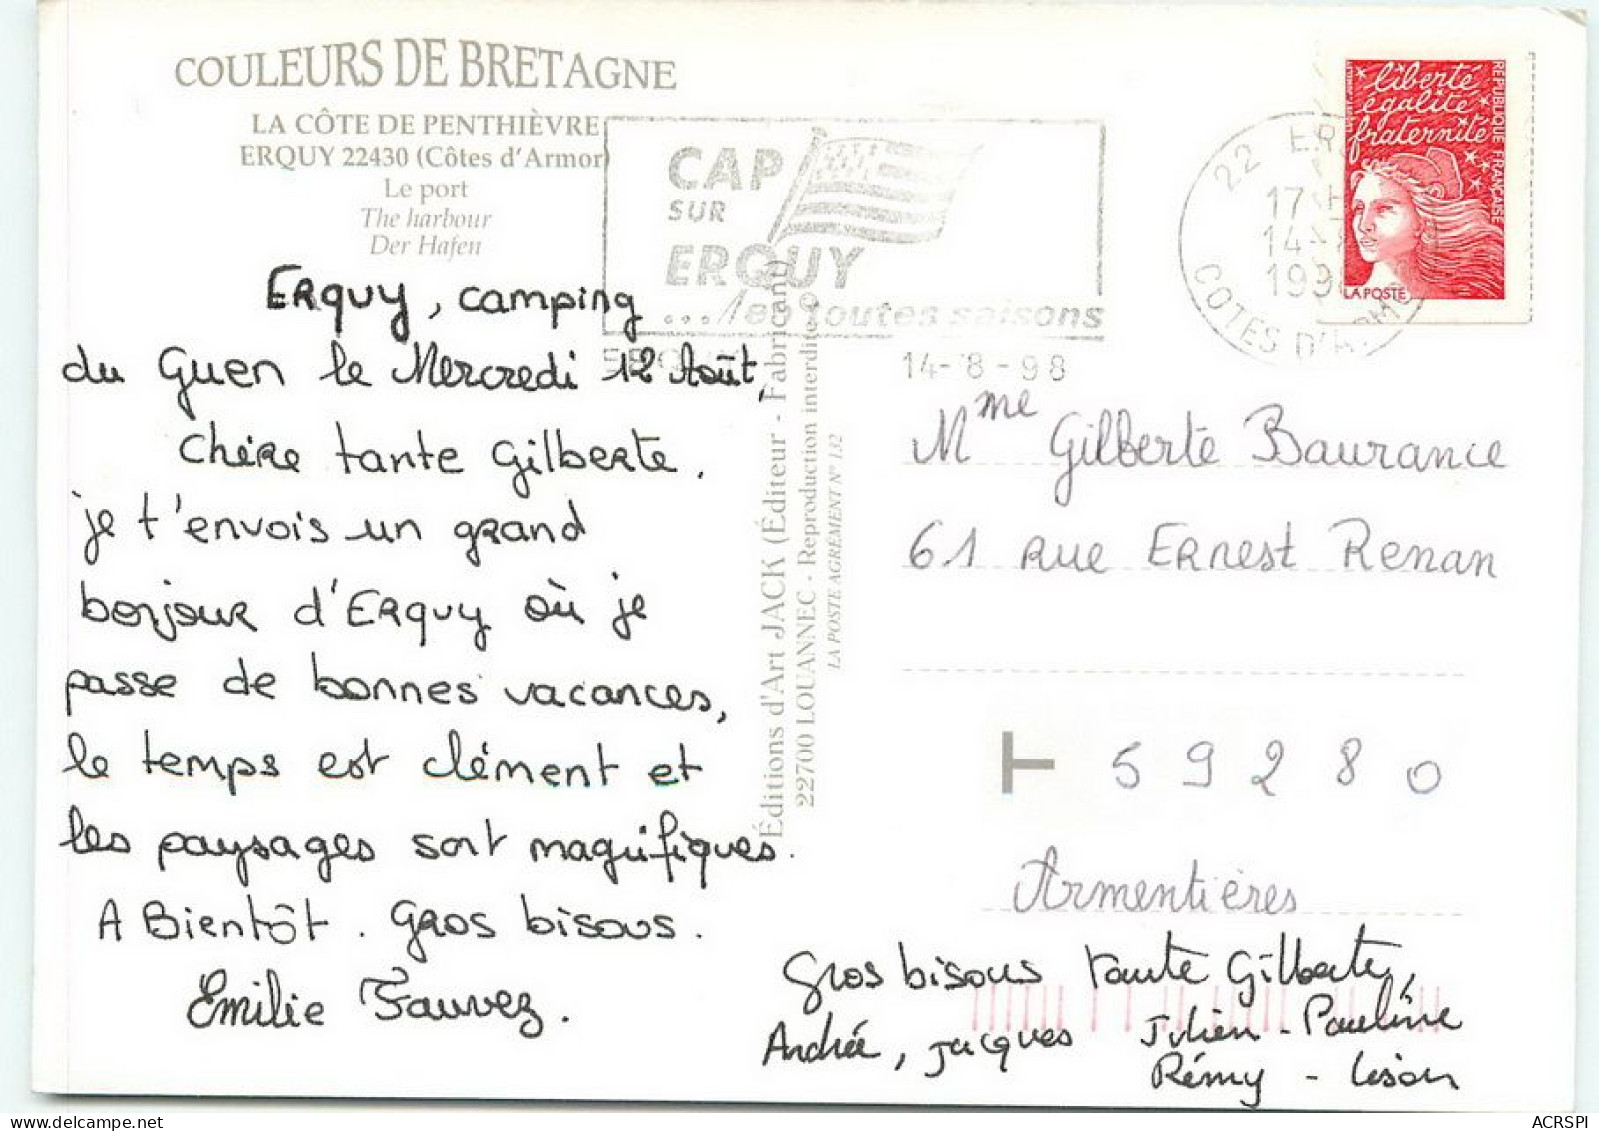 COULEURS DE BRETAGNE
LA CÔTE DE PENTHIÈVRE
ERQUY 22430 (Côtes d'Armor)
Le port
The harbour
Der Hafen
CAP
SUR
ERQUY
...les toutes saisons
14-8-98
22 ER
17 H
14-
199
COTES D'AR
liberté
égalité
fraternité
RÉPUBLIQUE FRANÇAISE
LA POSTE
Erquy, camping
du Guen le Mercredi 12 Août,
Chère tante Gilberte.
je t'envois un grand
bonjour d'Erquy où je
passe de bonnes vacances,
le temps est clément et
les paysages sont magnifiques.
A Bientôt. Gros bisous.
Emilie Fauvez.
Éditions d'Art JACK (Éditeur - Fabricant)
22700 LOUANNEC - Reproduction interdite ©
LA POSTE AGRÉMENT N° 132
Mme Gilberte Baurance
61 rue Ernest Renan
T 59280
Armentières
Gros bisous tante Gilberte,
Andrée, Jacques Julien - Pauline
Rémy - Lison
ACRSPI